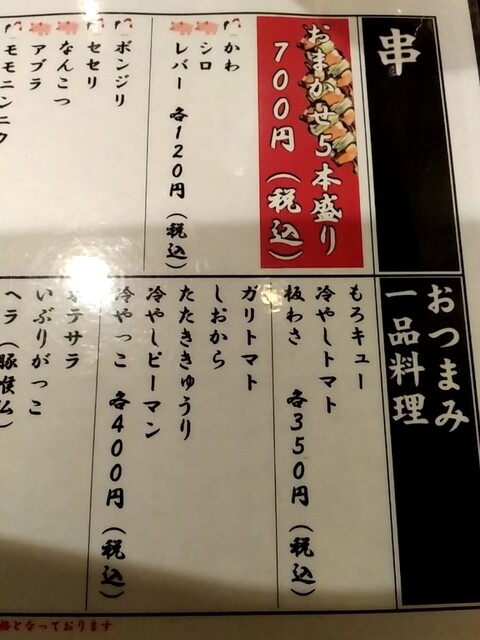 串
おまかせ5本盛り
700円（税込）
かわ
シロ
レバー 各120円（税込）
ボンジリ
セセリ
なんこつ
アブラ
モモニンニク
おつまみ
一品料理
もろキュー
冷やしトマト
板わさ 各350円（税込）
ガリトマト
しおから
たたききゅうり
冷やしピーマン
冷やっこ 各400円（税込）
テサラ
いぶりがっこ
ヘラ（豚喉仏）
格となっております